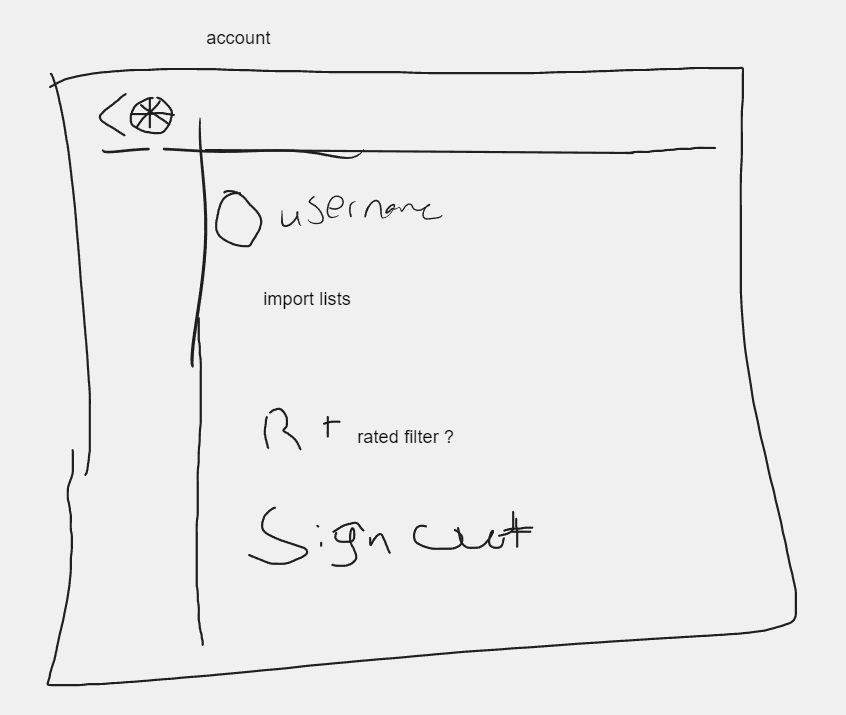 account
username
import lists
R + rated filter ?
Sign out